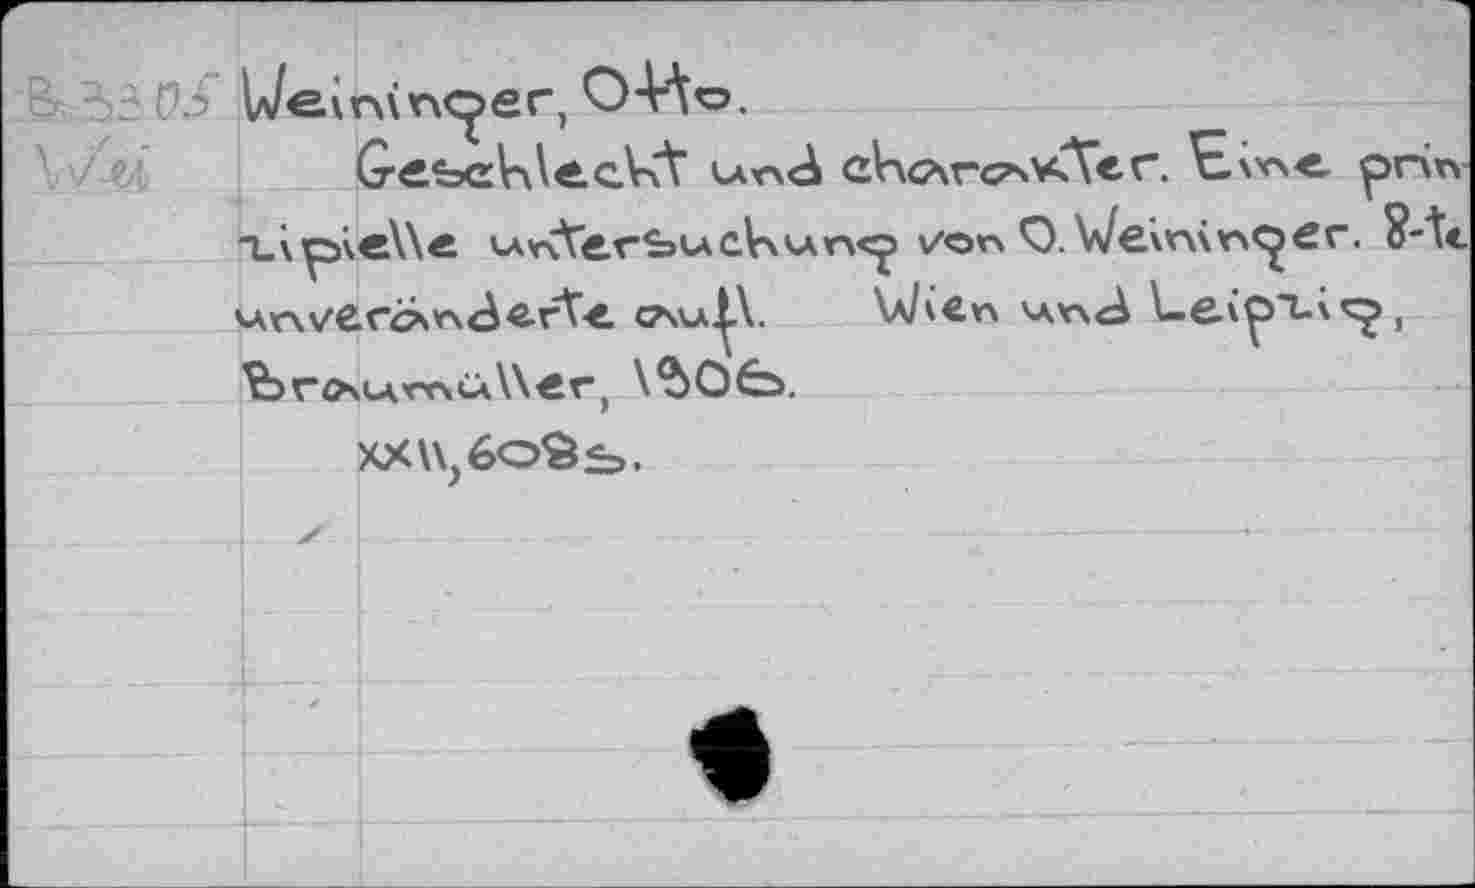 B.33 05 Weininger, Otto.
Wei Geschlecht und character. Eine prin-
zipielle untersuchung von O. Weininger. 8-te
unveränderte aufl. Wien und Leipzig,
Braumüller, 1906.
XXII, 608 s.